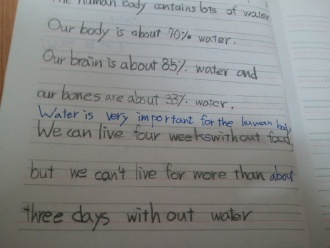 The human body contains lots of water
Our body is about 70% water.
Our brain is about 85% water and
our bones are about 33% water.
Water is very important for the human body
We can live four weekswithout food,
but we can't live for more than about
three days with out water